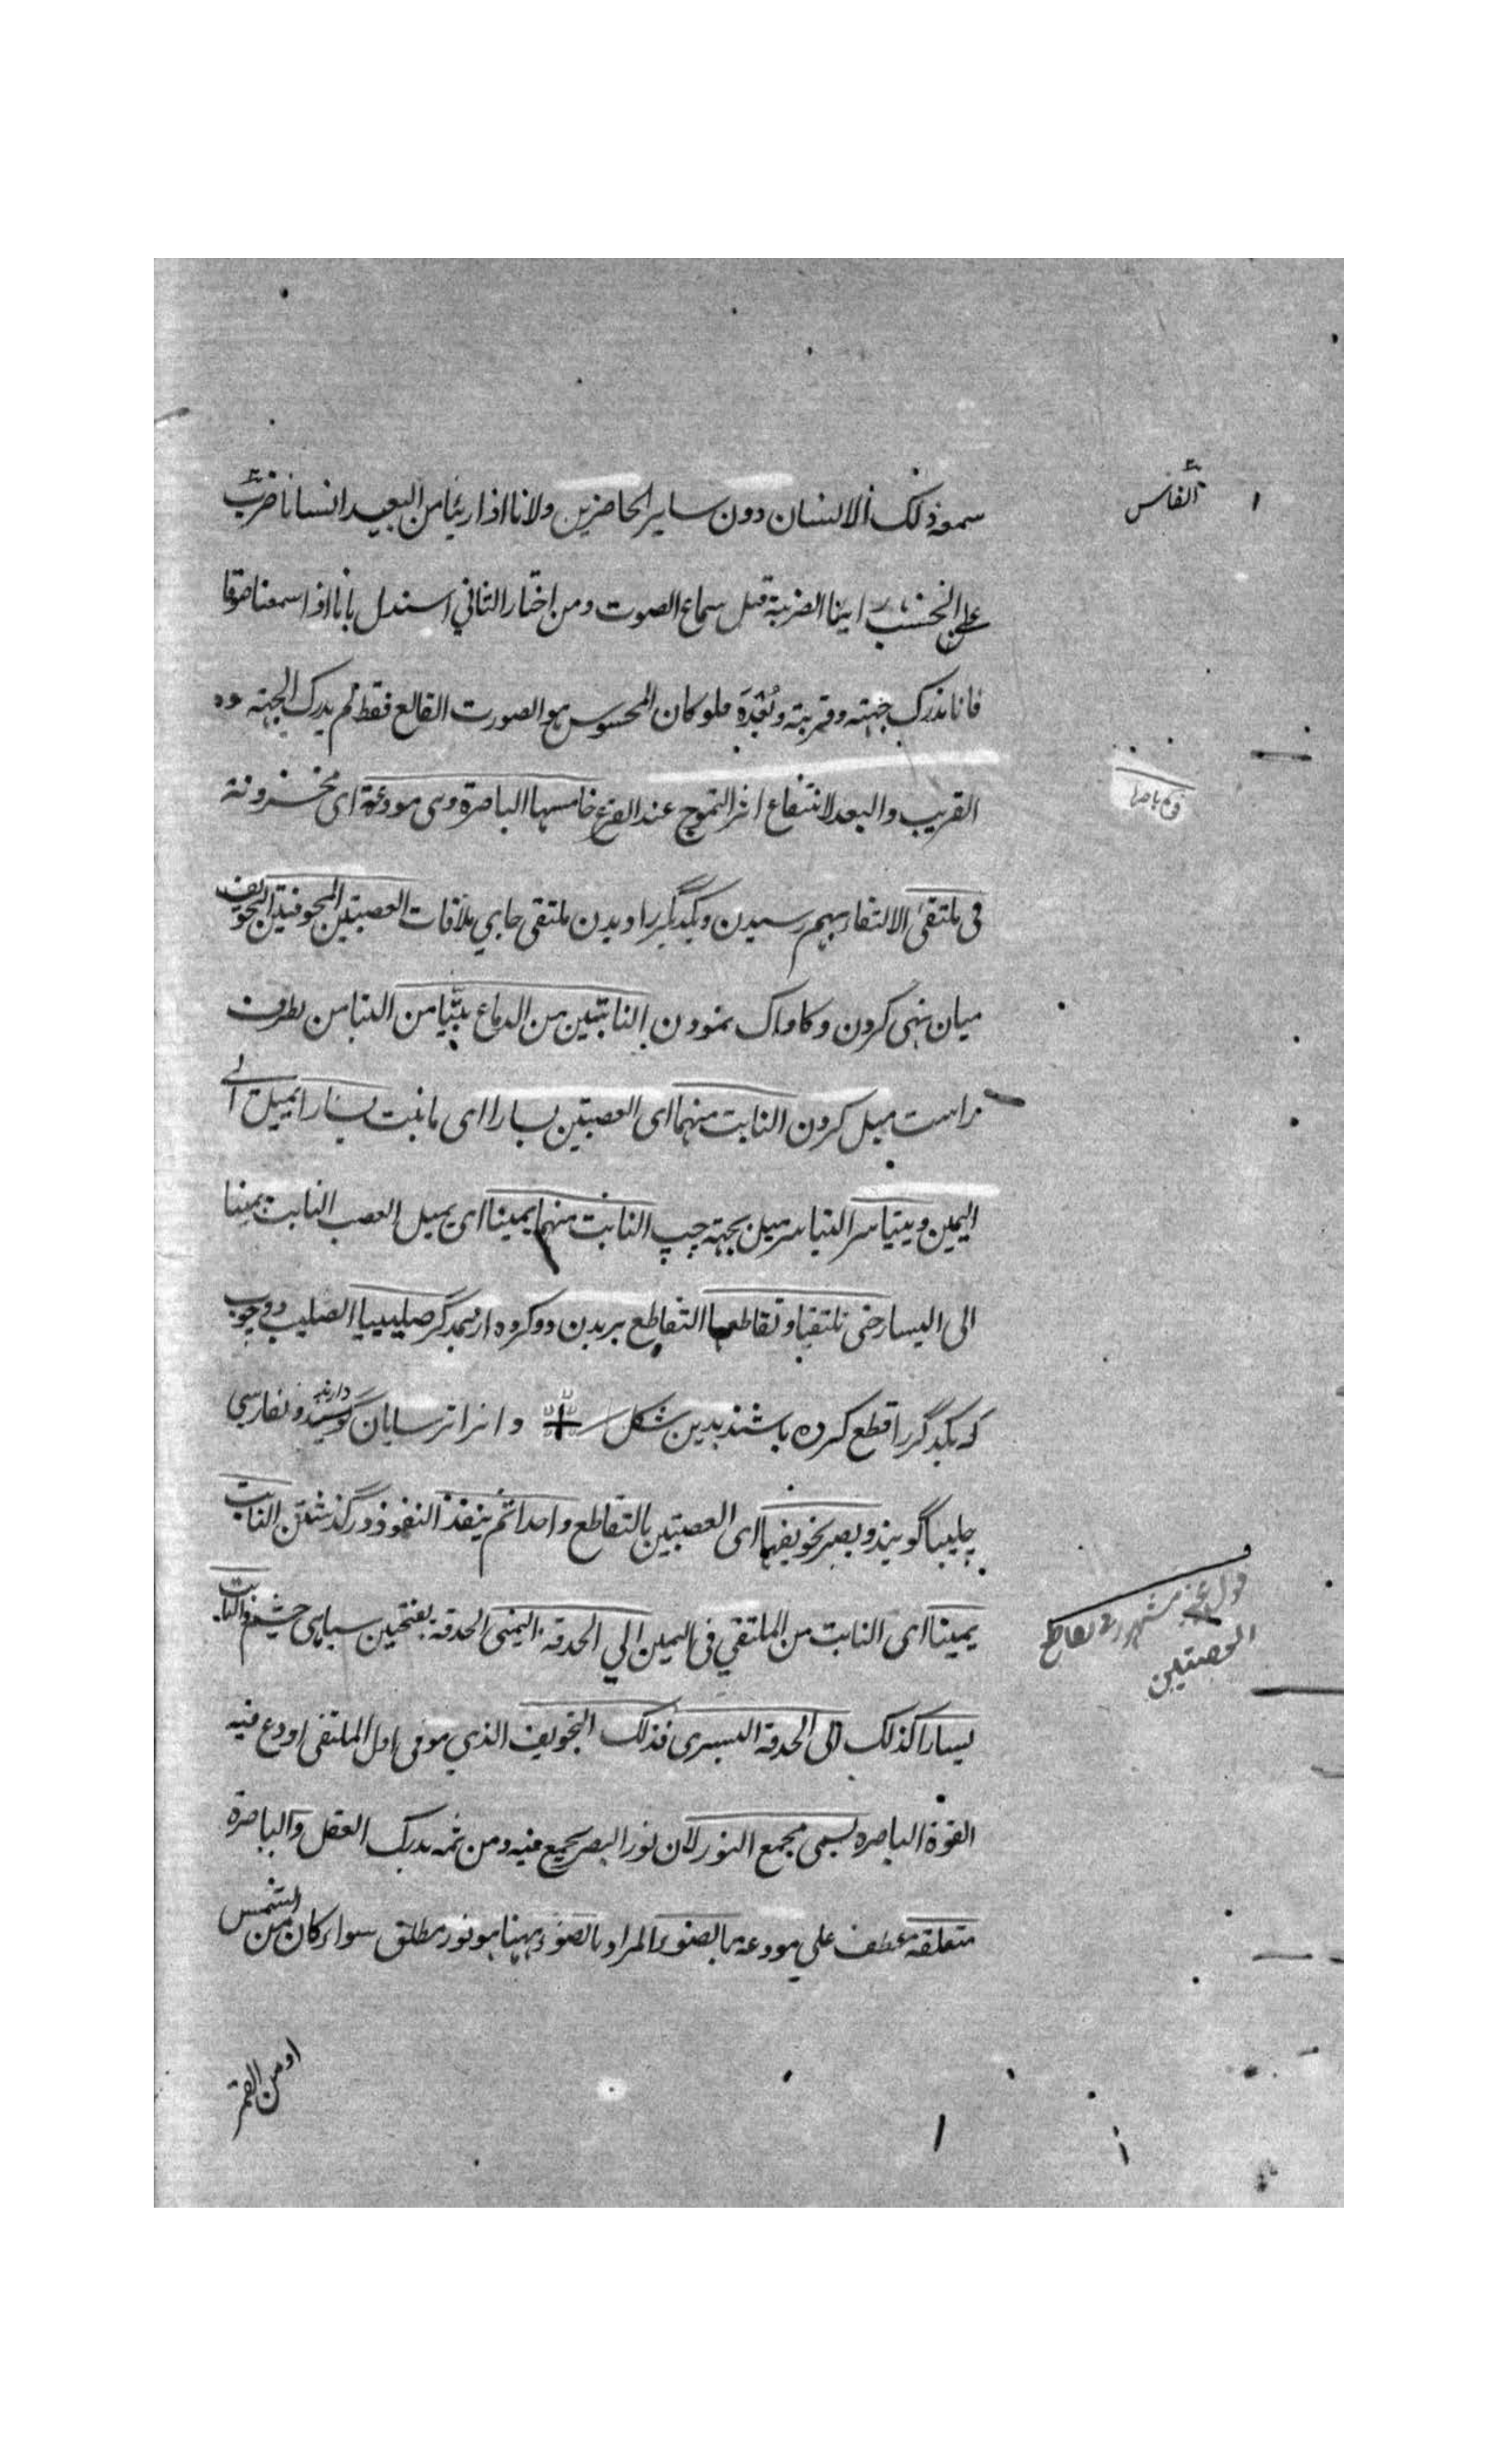 سمعه ذلك الانسان دون ساير الحاضرين ولانا اذا رينا من البعيد انسانا ضرب
الفاس
على الخشب راينا الضربة قبل سماع الصوت ومن اختار الثاني استدل بانا اذا سمعنا صوتا
فانا ندرك جهته وقربته وبُعْدَه فلو كان المحسوس هو الصورت القالع فقط لم يدرك الجهته
القريب والبعد لانتفاع اثر التموج عند القرع خامسها الباصرة وهى مودعة اى مخزونة
فى ملتقى الالتقاء بهم رسيدن ويكديگر را ديدن ملتقى جاي ملاقات العصبتين المجوفتين التجويف
ميان تهى كردن وكاواك نمودن النابتتين من الدماغ يتيامن التيامن بطرف
راست ميل كردن النابت منهما اى العصبتين يسارا اى ما نبت يسارا يميل الى
اليمين ويتياسر التياسر ميل بجهة چپ النابت منهما يمينا اى يميل العصب النابت يمينا
الى اليسار حتى تلتقيا وتقاطعا التقاطع بريدن دو كروه از همديگر صليبيا الصليب دو چوب
كه يكديگر را قطع كرده باشند بدين شكل + وانرا ترسايان دارند وبفارسي
چليپا گويند و يصير تجويفهما اى العصبتين بالتقاطع واحدا ثم ينفذ النفوذ در گذشتن النابت
يمينا اى النابت من الملتقي فى اليمين الي الحدقة اليمنى الحدقة بفتحتين سياهى چشم والنابت
قول غير مشهور فى تقاطع
العصبتين
يسارا كذلك الى الحدقة اليسرى فذلك التجويف الذي هو فى اول الملتقى اودع فيه
القوة الباصره يسمى مجمع النور لان نور البصر يجمع فيه ومن ثمه يدرك العقل والباصرة
متعلقة عطف علي مودعة بالضوء المراد بالضوء ههنا هو نور مطلق سواء كان من الشمس
او من القمر